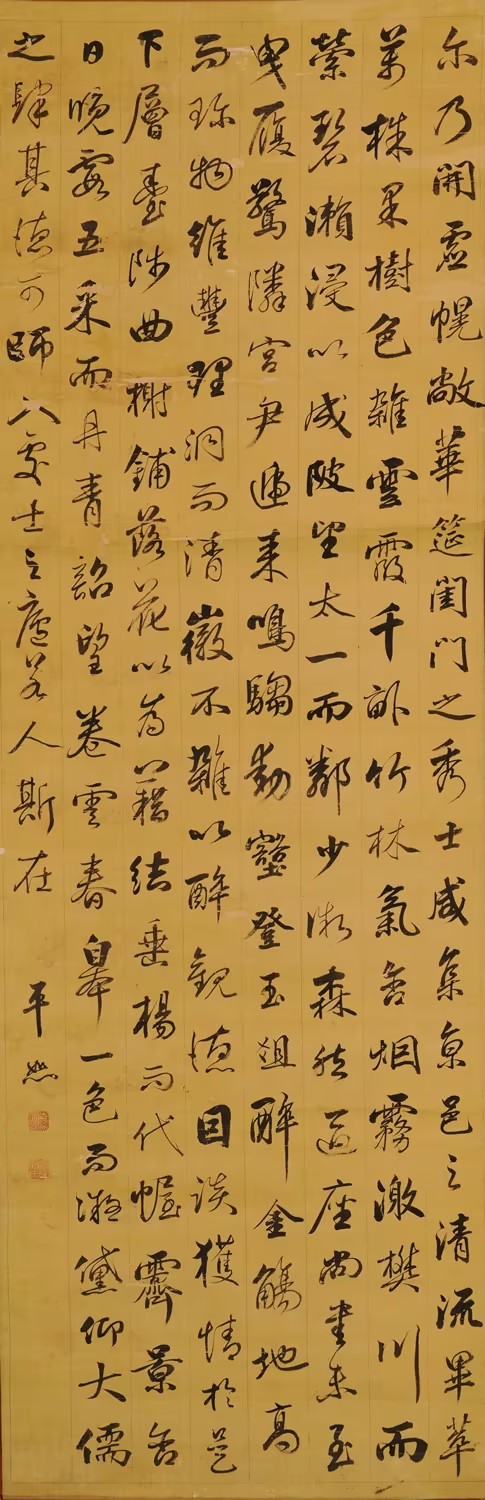 尔乃開虛幌敞華筵閨門之秀士咸集京邑之清流畢萃
萬株果樹色雜雲霞千畝竹林氣含烟霧激樊川而
縈碧瀨浸以成陂望太一而鄰少微森然逼座尚書未至
曳履驚隣宮尹遞来鳴騶動壑登玉俎醉金觴地高
而珍物維豐理洞而清徽不雜以醉觀德因談獲情於是
下層臺陟曲榭鋪落花以為藉結垂楊而代幄霽景含
日晚霞五采而丹青韶望卷雲春皋一色而凝黛仰大儒
之肆其德可師入處士之廬若人斯在
平